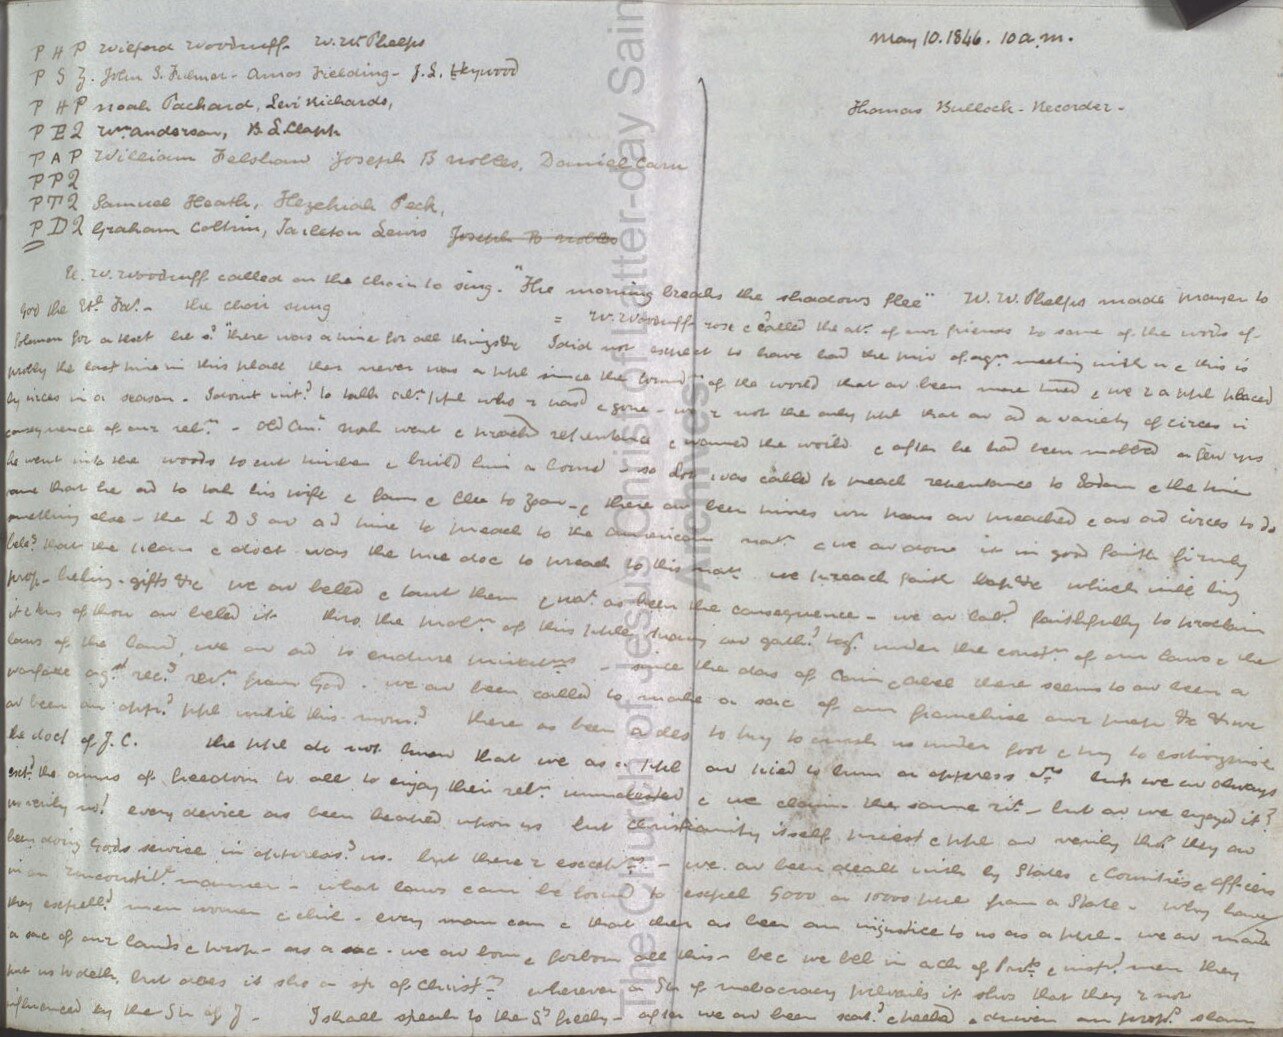 May 10. 1846. 10 a.m.
Thomas Bullock - Recorder -
P H P Wilford Woodruff - W. W. Phelps
P S Z. John S. Fulmer - Amos Fielding - J. L. Heywood
P H P Noah Packard, Levi Richards,
P E Q Wm. Anderson, B L Clapp
P A P William Felshaw Joseph B Nobles, Daniel Carn
P P Q
P T Q Samuel Heath, Hezekiah Peck,
P D Q Graham Coltrin, Tarleton Lewis Joseph B Nobles
E. W. Woodruff called on the choir to sing. "The morning breaks the shadows flee" W. W. Phelps made prayer to
God the Etl. Far. - the choir sung = W. Woodruff rose & called the atn. of our friends to some of the words of
Solomon for a text he sd. "there was a time for all things &c I did not expect to have had the priv of agn. meeting with u & this is
probly the last time in this place ther never was a ppl since the of the world that av been more tried & we r a ppl placed
by circes in a season - I dont intd. to talk abt. ppl who r dead & gone - we r not the only ppl that av ad a variety of circes in
consequence of our reln. - old Noah went & preachd repentance & warned the world & after he had been mobbed a few yrs
he went into the woods to cut timber & build him a boat - so Lot was called to preach repentance to Sodom & the time
came that he ad to take his wife & fam & flee to Zoar - & there av been times wn men av preached & av ad circes to do
something else - the L D S av ad time to preach to the american natn. & we av done it in good faith firmly
beld. that the plans & doct was the true doc to preach to this natn. we preach faith bapt &c which will bring
prop - healing - gifts &c we av beled & taut them & wat as been the consequence - we av labd. faithfully to proclaim
it & tens of thou av beled it thro the proln. of this ppl many av gathd. togr. under the constn. of our laws & the
laws of the land, we av ad to endure privatns - since the days of Cain & Abel there seems to av been a
warfare agst recg. revn. from God. we av been called to make a sac of our franchise our prop &c & we
av been an oppd. ppl until this morng. there as been a des to try to crush us under foot & try to extinguish
the doct of J. C. the ppl do not know that we as a ppl av tried to burn or oppress ors but we av always
extd. the arms of freedom to all to enjoy their reln. unmolested & we claim the same rit - but av we enjoyed it?
no verily no! every device as been heaped upon us but christianity itself priest & ppl av verily thot they av
been doing Gods service in oppressg. us. but there r exceptns - we av been dealt with by States & Counties & officers
in an unconstitl. manner - what laws can be found to expell 5000 or 10000 ppl from a State - why have
they expelld. men women & chil - every man can c that ther as been an injustice to us as a ppl - we av made
a sac of our lands & prop - as a sac - we av born & forborn all this - bec we bel in a ch of Prots & inspd. men they
put us to deth, but does it sho a sp of Christn. wherever a Sp of mobocracy prevails it shos that they r not
influenced by the Sp of J - I shall speak to the Sts freely - after we av been scatd. & peeled & driven our propt. slain